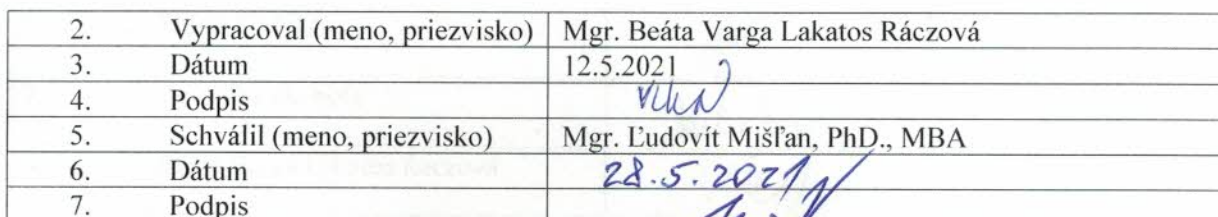 2. Vypracoval (meno, priezvisko) Mgr. Beáta Varga Lakatos Ráczová
3. Dátum 12.5.2021
4. Podpis
5. Schválil (meno, priezvisko) Mgr. Ľudovít Mišľan, PhD., MBA
6. Dátum 28.5.2021
7. Podpis